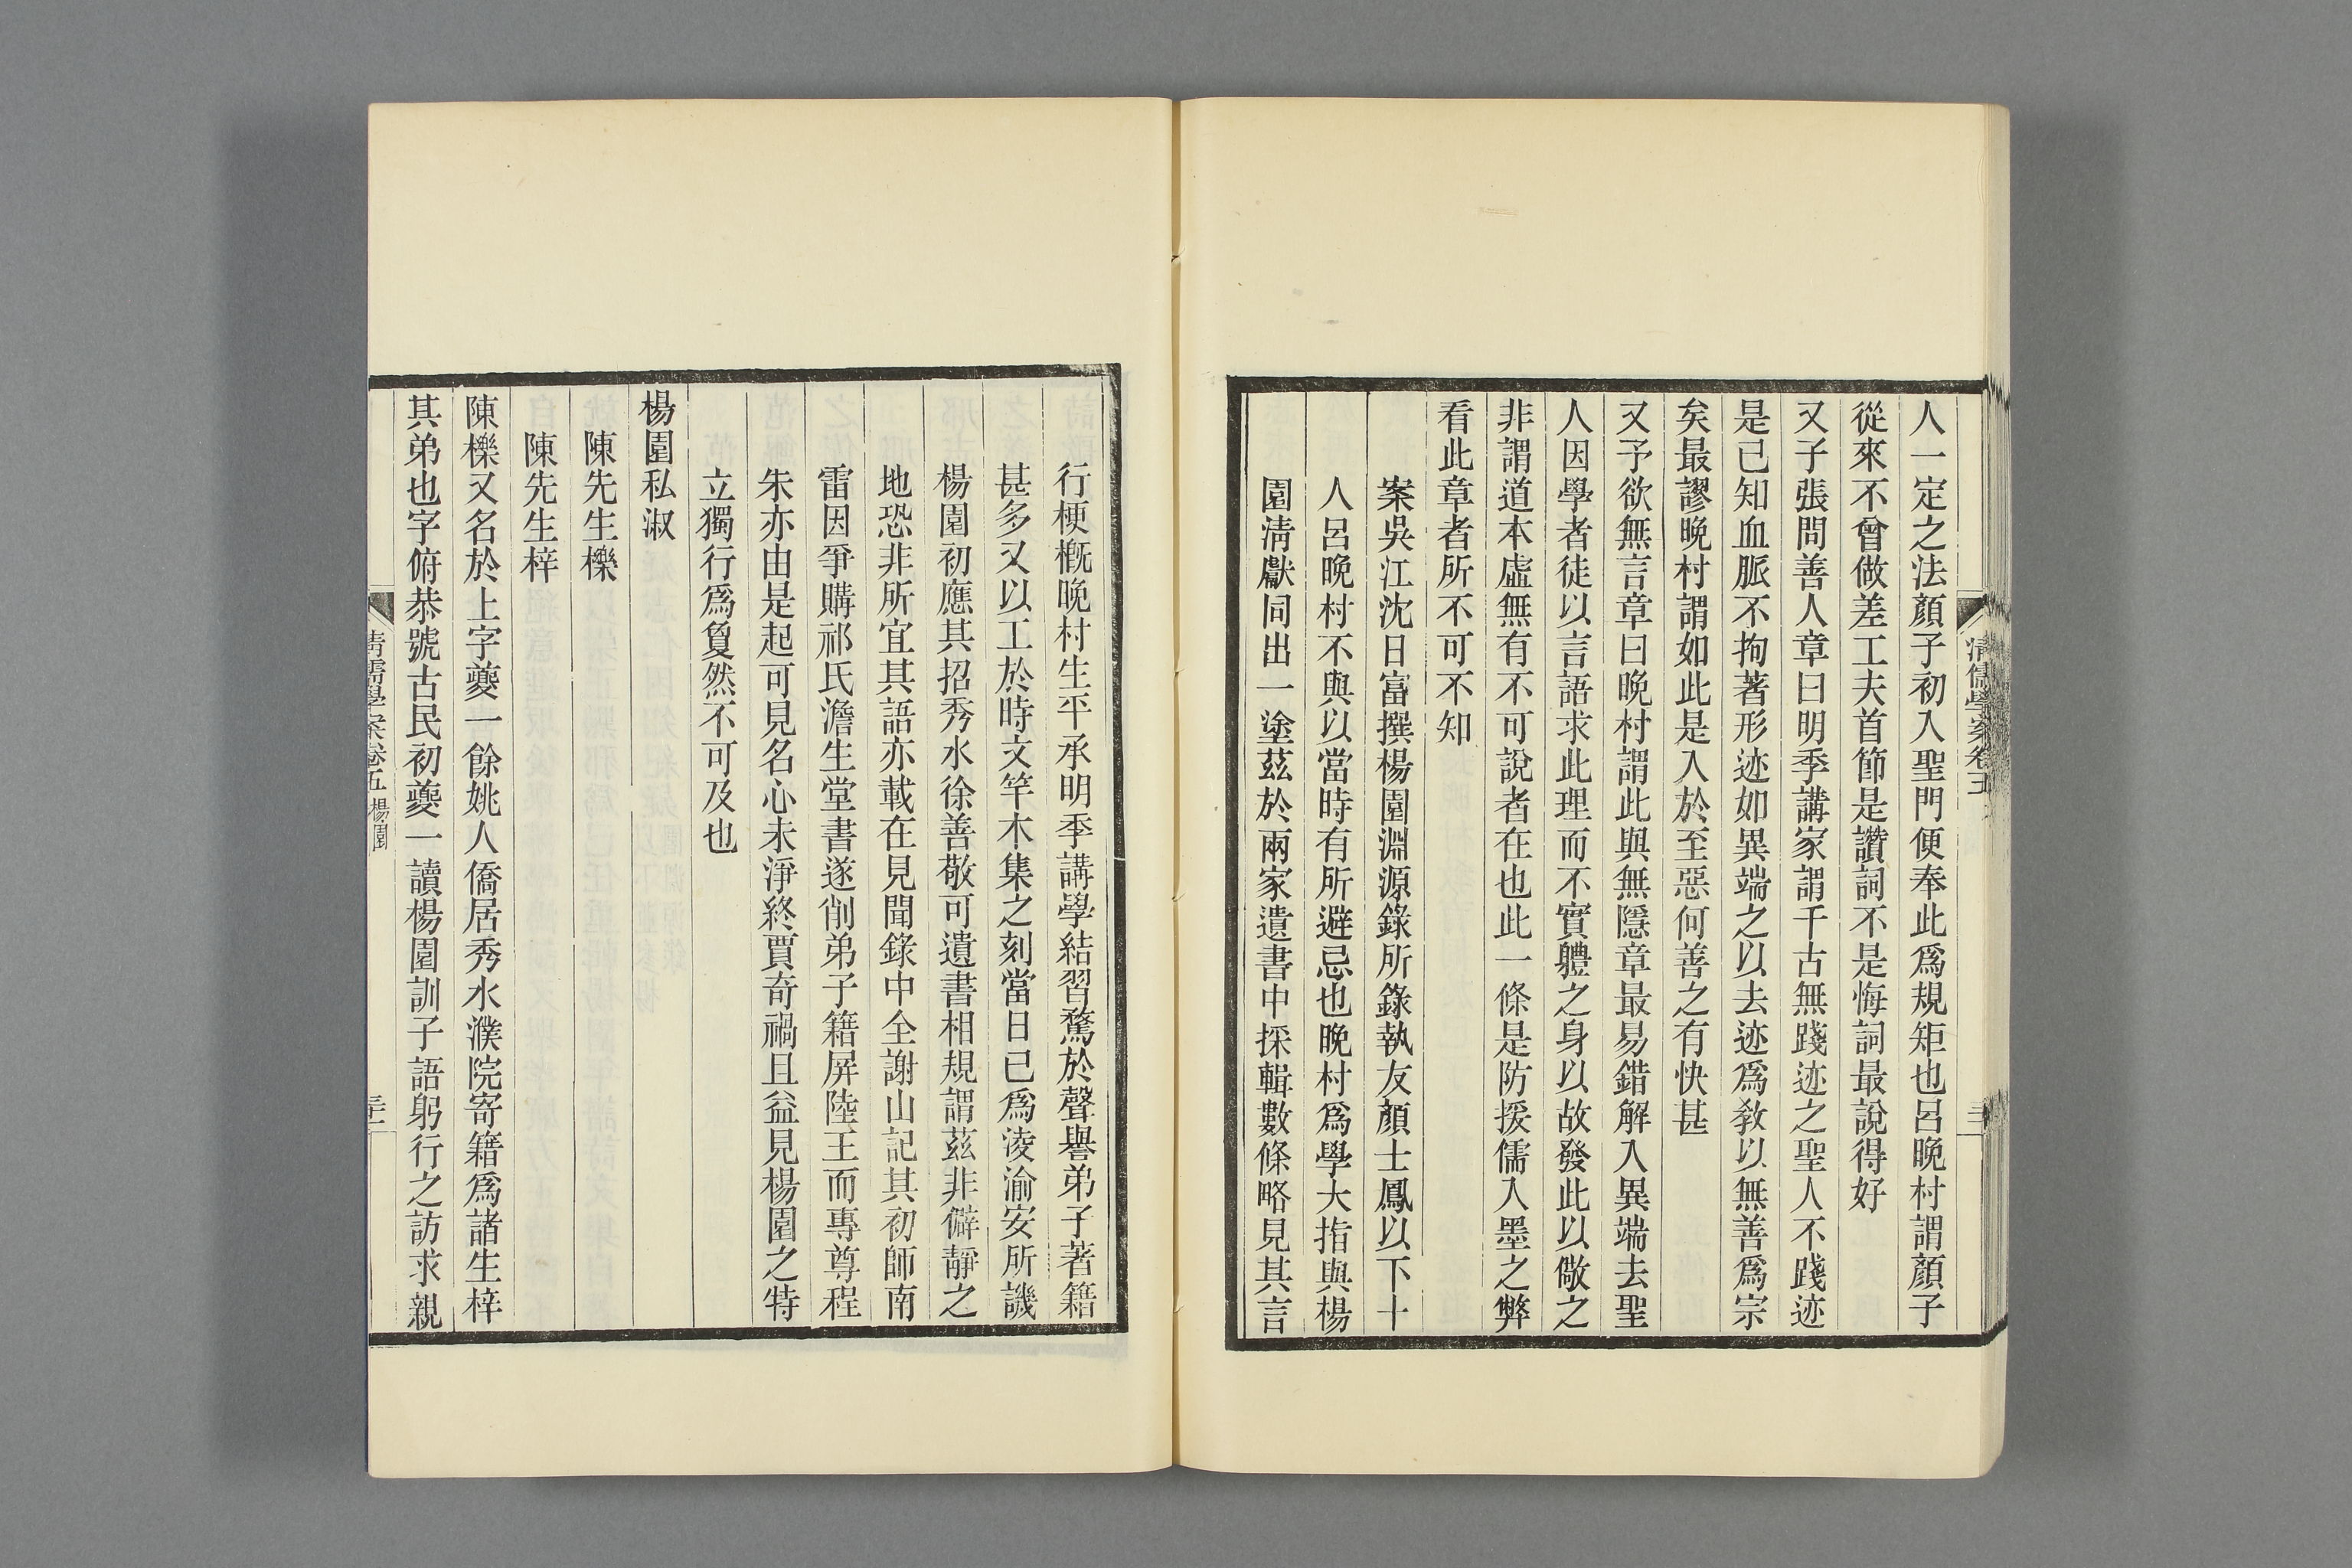 人一定之法顏子初入聖門便奉此爲規矩也呂晚村謂顏子
從來不曾做差工夫首節是讚詞不是悔詞最說得好
又子張問善人章曰明季講家謂千古無踐迹之聖人不踐迹
是已知血脈不拘著形迹如異端之以去迹爲敎以無善爲宗
矣最謬晚村謂如此是入於至惡何善之有快甚
又予欲無言章曰晚村謂此與無隱章最易錯解入異端去聖
人因學者徒以言語求此理而不實體之身以故發此以儆之
非謂道本虛無有不可說者在也此一條是防援儒入墨之弊
看此章者所不可不知
案吳江沈日富撰楊園淵源錄所錄執友顏士鳳以下十
人呂晚村不與以當時有所避忌也晚村爲學大指與楊
園淸獻同出一塗茲於兩家遺書中採輯數條略見其言
行梗槪晚村生平承明季講學結習騖於聲譽弟子著籍
甚多又以工於時文竿木集之刻當日已爲淩渝安所譏
楊園初應其招秀水徐善敬可遺書相規謂茲非僻靜之
地恐非所宜其語亦載在見聞錄中全謝山記其初師南
雷因爭購祁氏澹生堂書遂削弟子籍屛陸王而專尊程
朱亦由是起可見名心未淨終賈奇禍且益見楊園之特
立獨行爲敻然不可及也
楊園私淑
陳先生櫟
陳先生梓
陳櫟又名於上字夔一餘姚人僑居秀水濮院寄籍爲諸生梓
其弟也字俯恭號古民初夔一讀楊園訓子語躬行之訪求親
淸儒學案卷五 楊園